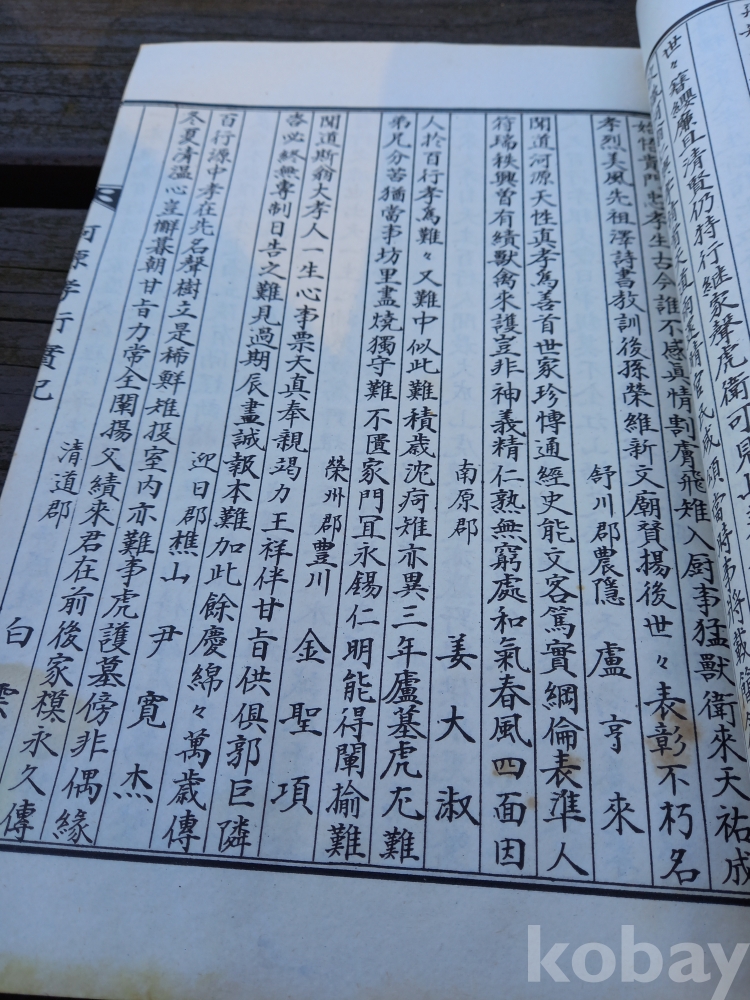 世々簪纓廉且清賢仍特行継家聲虎衛可
始悟貴門忠孝生古今誰不感眞情割膚飛雉入厨事猛獸衛來天祐成
孝烈美風先祖澤詩書敎訓後孫榮維新文廟賛揚後世々表彰不朽名
舒川郡農隱 盧亨來
聞道河源天性真孝為善首世家珍博通經史能文客篤實綱倫表準人
符瑞秩興曽有績獸禽來護豈非神義精仁熟無窮處和氣春風四面因
南原郡 姜大淑
人於百行孝為難々又難中似此難積歲沈痾雉亦異三年廬墓虎尤難
弟兄分苦猶當事坊里盡燒獨守難不匱家門冝永錫仁明能得闡揄難
榮州郡豊川 金聖項
聞道斯翁大孝人一生心事禀天真奉親竭力王祥伴甘旨供俱郭巨隣
喪必終無專制日告之難見過期辰盡誠報本難加此餘慶綿々萬歲傳
迎日郡樵山 尹寛杰
百行源中孝在先名聲樹立是稀鮮雉投室內亦難事虎護墓傍非偶緣
冬夏凊溫心豈懈暮朝甘旨力常全闡揚父績來君在前後家模永久傳
清道郡 白雲
河源孝行實記
kobay